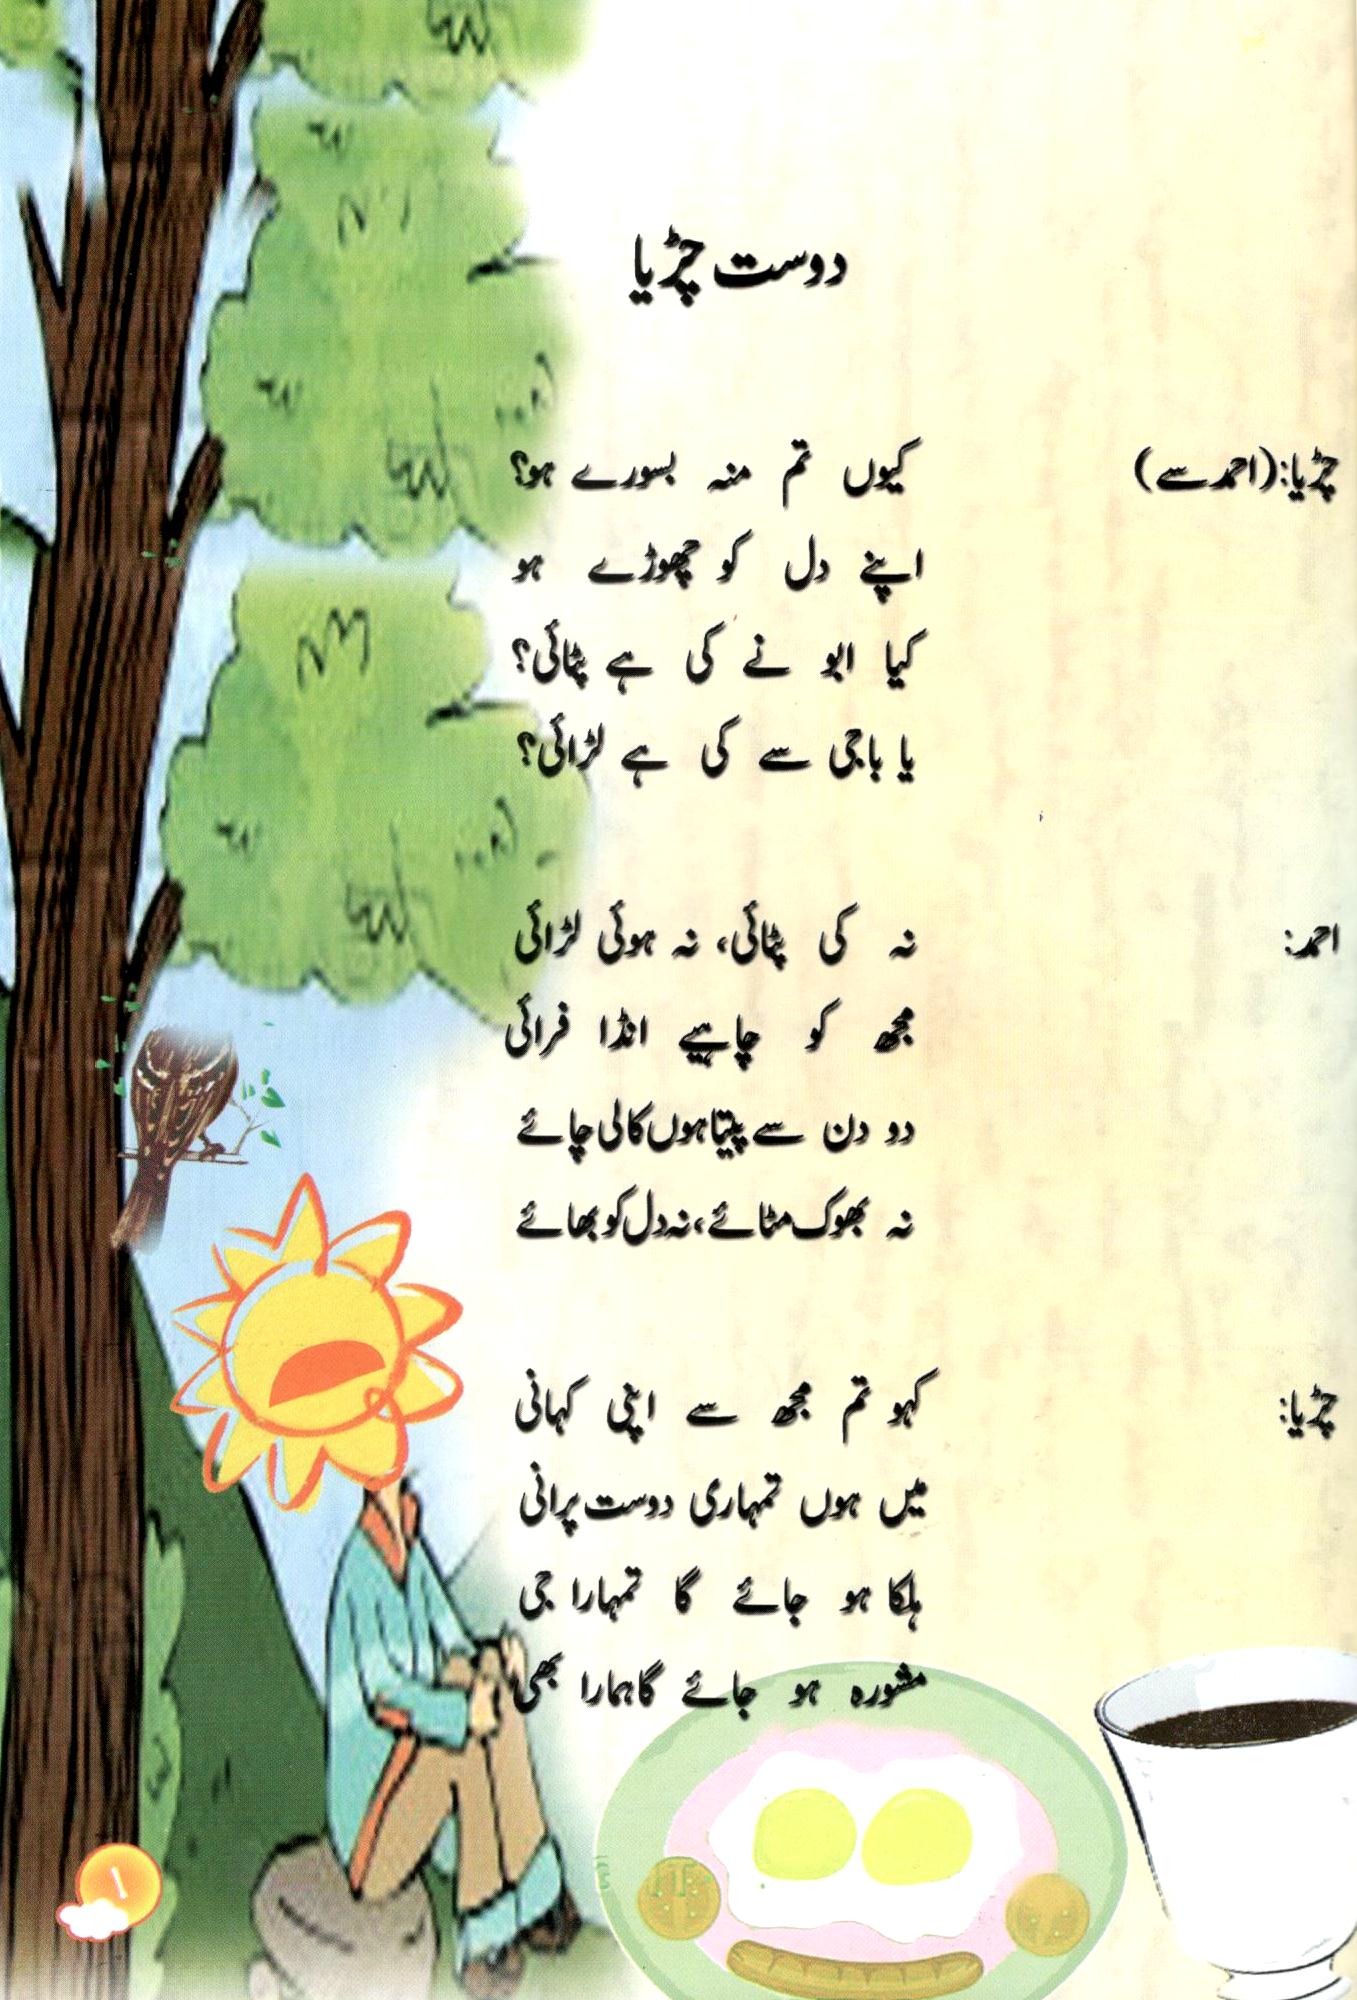 دوست چڑیا
چڑیا: (احمد سے) کیوں تم منہ بسورے ہو؟
اپنے دل کو چھوڑے ہو
کیا ابو نے کی ہے پٹائی؟
یا باجی سے کی ہے لڑائی؟
احمد: نہ کی پٹائی، نہ ہوئی لڑائی
مجھ کو چاہیے انڈا فرائی
دو دن سے پیتا ہوں کالی چائے
نہ بھوک مٹائے، نہ دل کو بھائے
چڑیا: کہو تم مجھ سے اپنی کہانی
میں ہوں تمہاری دوست پرانی
ہلکا ہو جائے گا تمہارا جی
مشورہ ہو جائے گا ہمارا بھی
۱